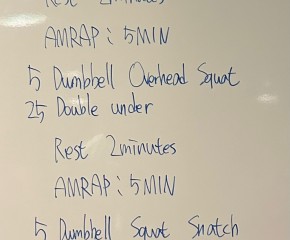 Rest 2minutes
AMRAP: 5MIN
5 Dumbbell Overhead Squat
25 Double under
Rest 2minutes
AMRAP: 5MIN
5 Dumbbell Squat Snatch